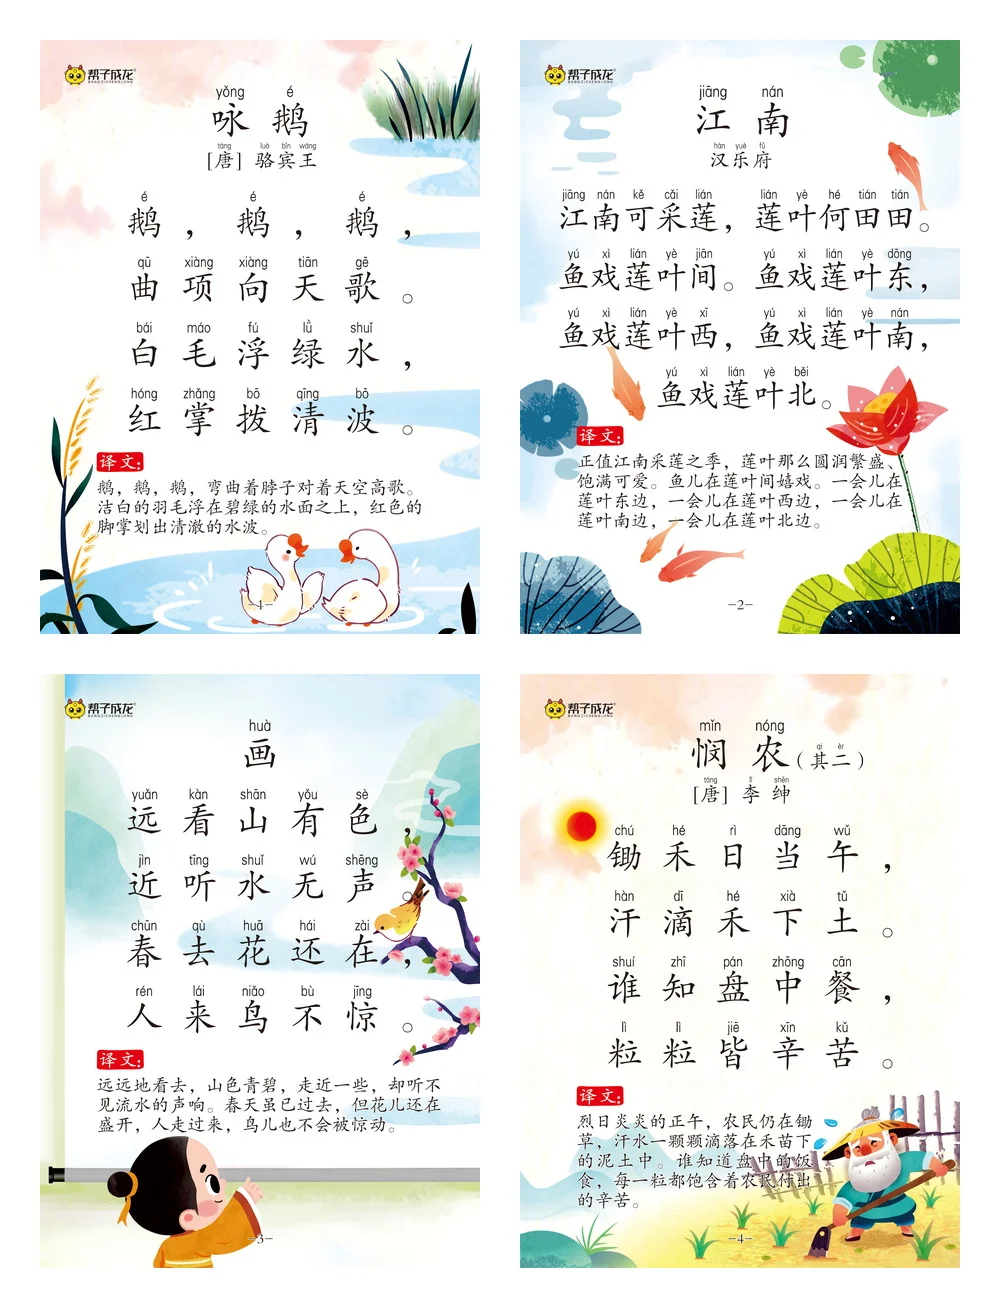 帮子成龙
BANGZICHENGLONG
yǒng é
咏 鹅
táng luò bīn wáng
[唐] 骆宾王
é é é
鹅，鹅，鹅，
qū xiàng xiàng tiān gē
曲项向天歌。
bái máo fú lǜ shuǐ
白毛浮绿水，
hóng zhǎng bō qīng bō
红掌拨清波。
译文:
鹅，鹅，鹅，弯曲着脖子对着天空高歌。
洁白的羽毛浮在碧绿的水面之上，红色的
脚掌划出清澈的水波。
-4-
帮子成龙
BANGZICHENGLONG
jiāng nán
江 南
hàn yuè fǔ
汉乐府
jiāng nán kě cǎi lián lián yè hé tián tián
江南可采莲，莲叶何田田。
yú xì lián yè jiān yú xì lián yè dōng
鱼戏莲叶间。鱼戏莲叶东，
yú xì lián yè xī yú xì lián yè nán
鱼戏莲叶西，鱼戏莲叶南，
yú xì lián yè běi
鱼戏莲叶北。
译文:
正值江南采莲之季，莲叶那么圆润繁盛、
饱满可爱。鱼儿在莲叶间嬉戏。一会儿在
莲叶东边，一会儿在莲叶西边，一会儿在
莲叶南边，一会儿在莲叶北边。
-2-
帮子成龙
BANGZICHENGLONG
huà
画
yuǎn kàn shān yǒu sè
远看山有色，
jìn tīng shuǐ wú shēng
近听水无声。
chūn qù huā hái zài
春去花还在，
rén lái niǎo bù jīng
人来鸟不惊。
译文:
远远地看去，山色青碧，走近一些，却听不
见流水的声响。春天虽已过去，但花儿还在
盛开，人走过来，鸟儿也不会被惊动。
-3-
帮子成龙
BANGZICHENGLONG
mǐn nóng qí èr
悯 农（其二）
táng lǐ shēn
[唐] 李 绅
chú hé rì dāng wǔ
锄禾日当午，
hàn dī hé xià tǔ
汗滴禾下土。
shuí zhī pán zhōng cān
谁知盘中餐，
lì lì jiē xīn kǔ
粒粒皆辛苦。
译文:
烈日炎炎的正午，农民仍在锄
草，汗水一颗颗滴落在禾苗下
的泥土中。谁知道盘中的饭
食，每一粒都饱含着农民付出
的辛苦。
-4-